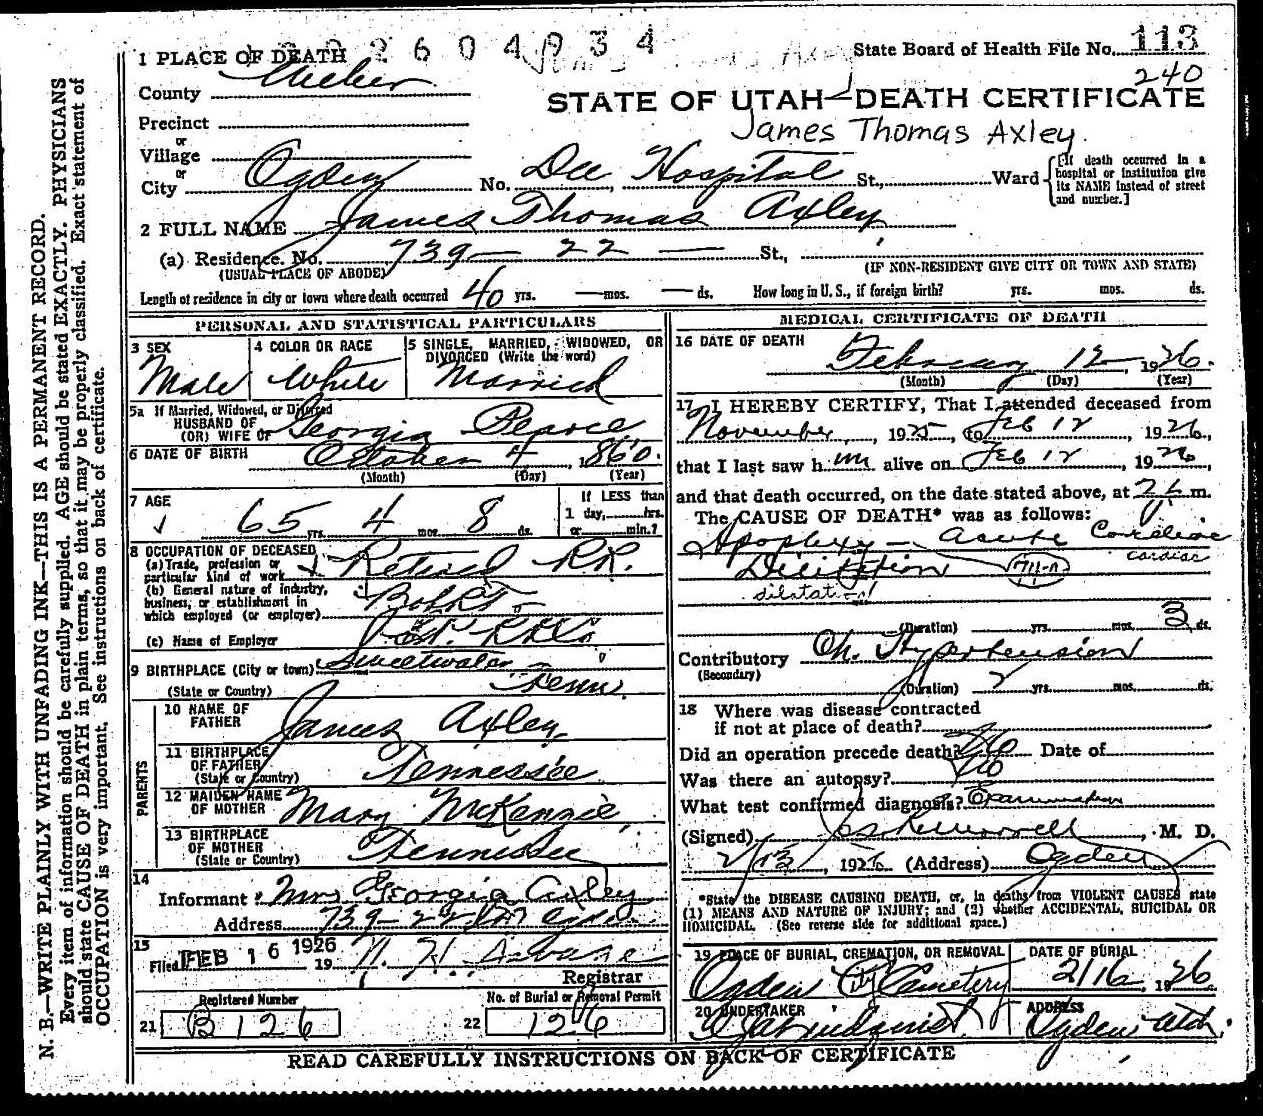 2604934
State Board of Health File No. 113
240
1 PLACE OF DEATH
County Weber
STATE OF UTAH—DEATH CERTIFICATE
James Thomas Axley
Precinct
or
Village
or
City Ogden No. Dee Hospital St., Ward
[If death occurred in a hospital or institution give its NAME instead of street and number.]
2 FULL NAME James Thomas Axley
(a) Residence. No. 739 — 22 — St.,
(USUAL PLACE OF ABODE) (IF NON-RESIDENT GIVE CITY OR TOWN AND STATE)
Length of residence in city or town where death occurred 40 yrs. — mos. — ds. How long in U. S., if foreign birth? yrs. mos. ds.
PERSONAL AND STATISTICAL PARTICULARS
3 SEX Male
4 COLOR OR RACE White
5 SINGLE, MARRIED, WIDOWED, OR DIVORCED (Write the word) Married
5a If Married, Widowed, or Divorced
HUSBAND OF
(OR) WIFE OF Georgia Pearce
6 DATE OF BIRTH October 4, 1860.
(Month) (Day) (Year)
7 AGE 65 yrs. 4 mos. 8 ds.
If LESS than
1 day, hrs.
or min.?
8 OCCUPATION OF DECEASED
(a) Trade, profession or
particular kind of work Retired RR.
(b) General nature of industry,
business, or establishment in
which employed (or employer)
(c) Name of Employer
9 BIRTHPLACE (City or town) Sweetwater
(State or Country) Tenn.
PARENTS
10 NAME OF
FATHER James Axley
11 BIRTHPLACE
OF FATHER
(State or Country) Tennessee
12 MAIDEN NAME
OF MOTHER Mary McKenzie
13 BIRTHPLACE
OF MOTHER
(State or Country) Tennessee
14
Informant Mrs Georgia Axley
Address 739-22 St Ogden
15
Filed FEB 16 1926 19
Registrar
Registered Number
21 B 126
No. of Burial or Removal Permit
22 126
MEDICAL CERTIFICATE OF DEATH
16 DATE OF DEATH
February 12, 1926.
(Month) (Day) (Year)
17 I HEREBY CERTIFY, That I attended deceased from
November, 1925 to Feb 12, 1926,
that I last saw him alive on Feb 12, 1926,
and that death occurred, on the date stated above, at m.
The CAUSE OF DEATH* was as follows:
Apoplexy — Acute Cardiac
cardiac
Dilitation
dilatation
(Duration) yrs. mos. 3 ds.
Contributory Ch. Hypertension
(Secondary)
(Duration) 2 yrs. mos. ds.
18 Where was disease contracted
if not at place of death?
Did an operation precede death? No Date of
Was there an autopsy? No
What test confirmed diagnosis? Examination
(Signed), M. D.
2/13/, 1926. (Address) Ogden
*State the DISEASE CAUSING DEATH, or, in deaths from VIOLENT CAUSES state
(1) MEANS AND NATURE OF INJURY; and (2) whether ACCIDENTAL, SUICIDAL OR
HOMICIDAL. (See reverse side for additional space.)
19 PLACE OF BURIAL, CREMATION, OR REMOVAL
Ogden City Cemetery
DATE OF BURIAL
2/16, 1926
20 UNDERTAKER
ADDRESS
Ogden Utah.
READ CAREFULLY INSTRUCTIONS ON BACK OF CERTIFICATE
N. B.—WRITE PLAINLY WITH UNFADING INK—THIS IS A PERMANENT RECORD.
Every item of information should be carefully supplied. AGE should be stated EXACTLY. PHYSICIANS
should state CAUSE OF DEATH in plain terms, so that it may be properly classified. Exact statement of
OCCUPATION is very important. See instructions on back of certificate.